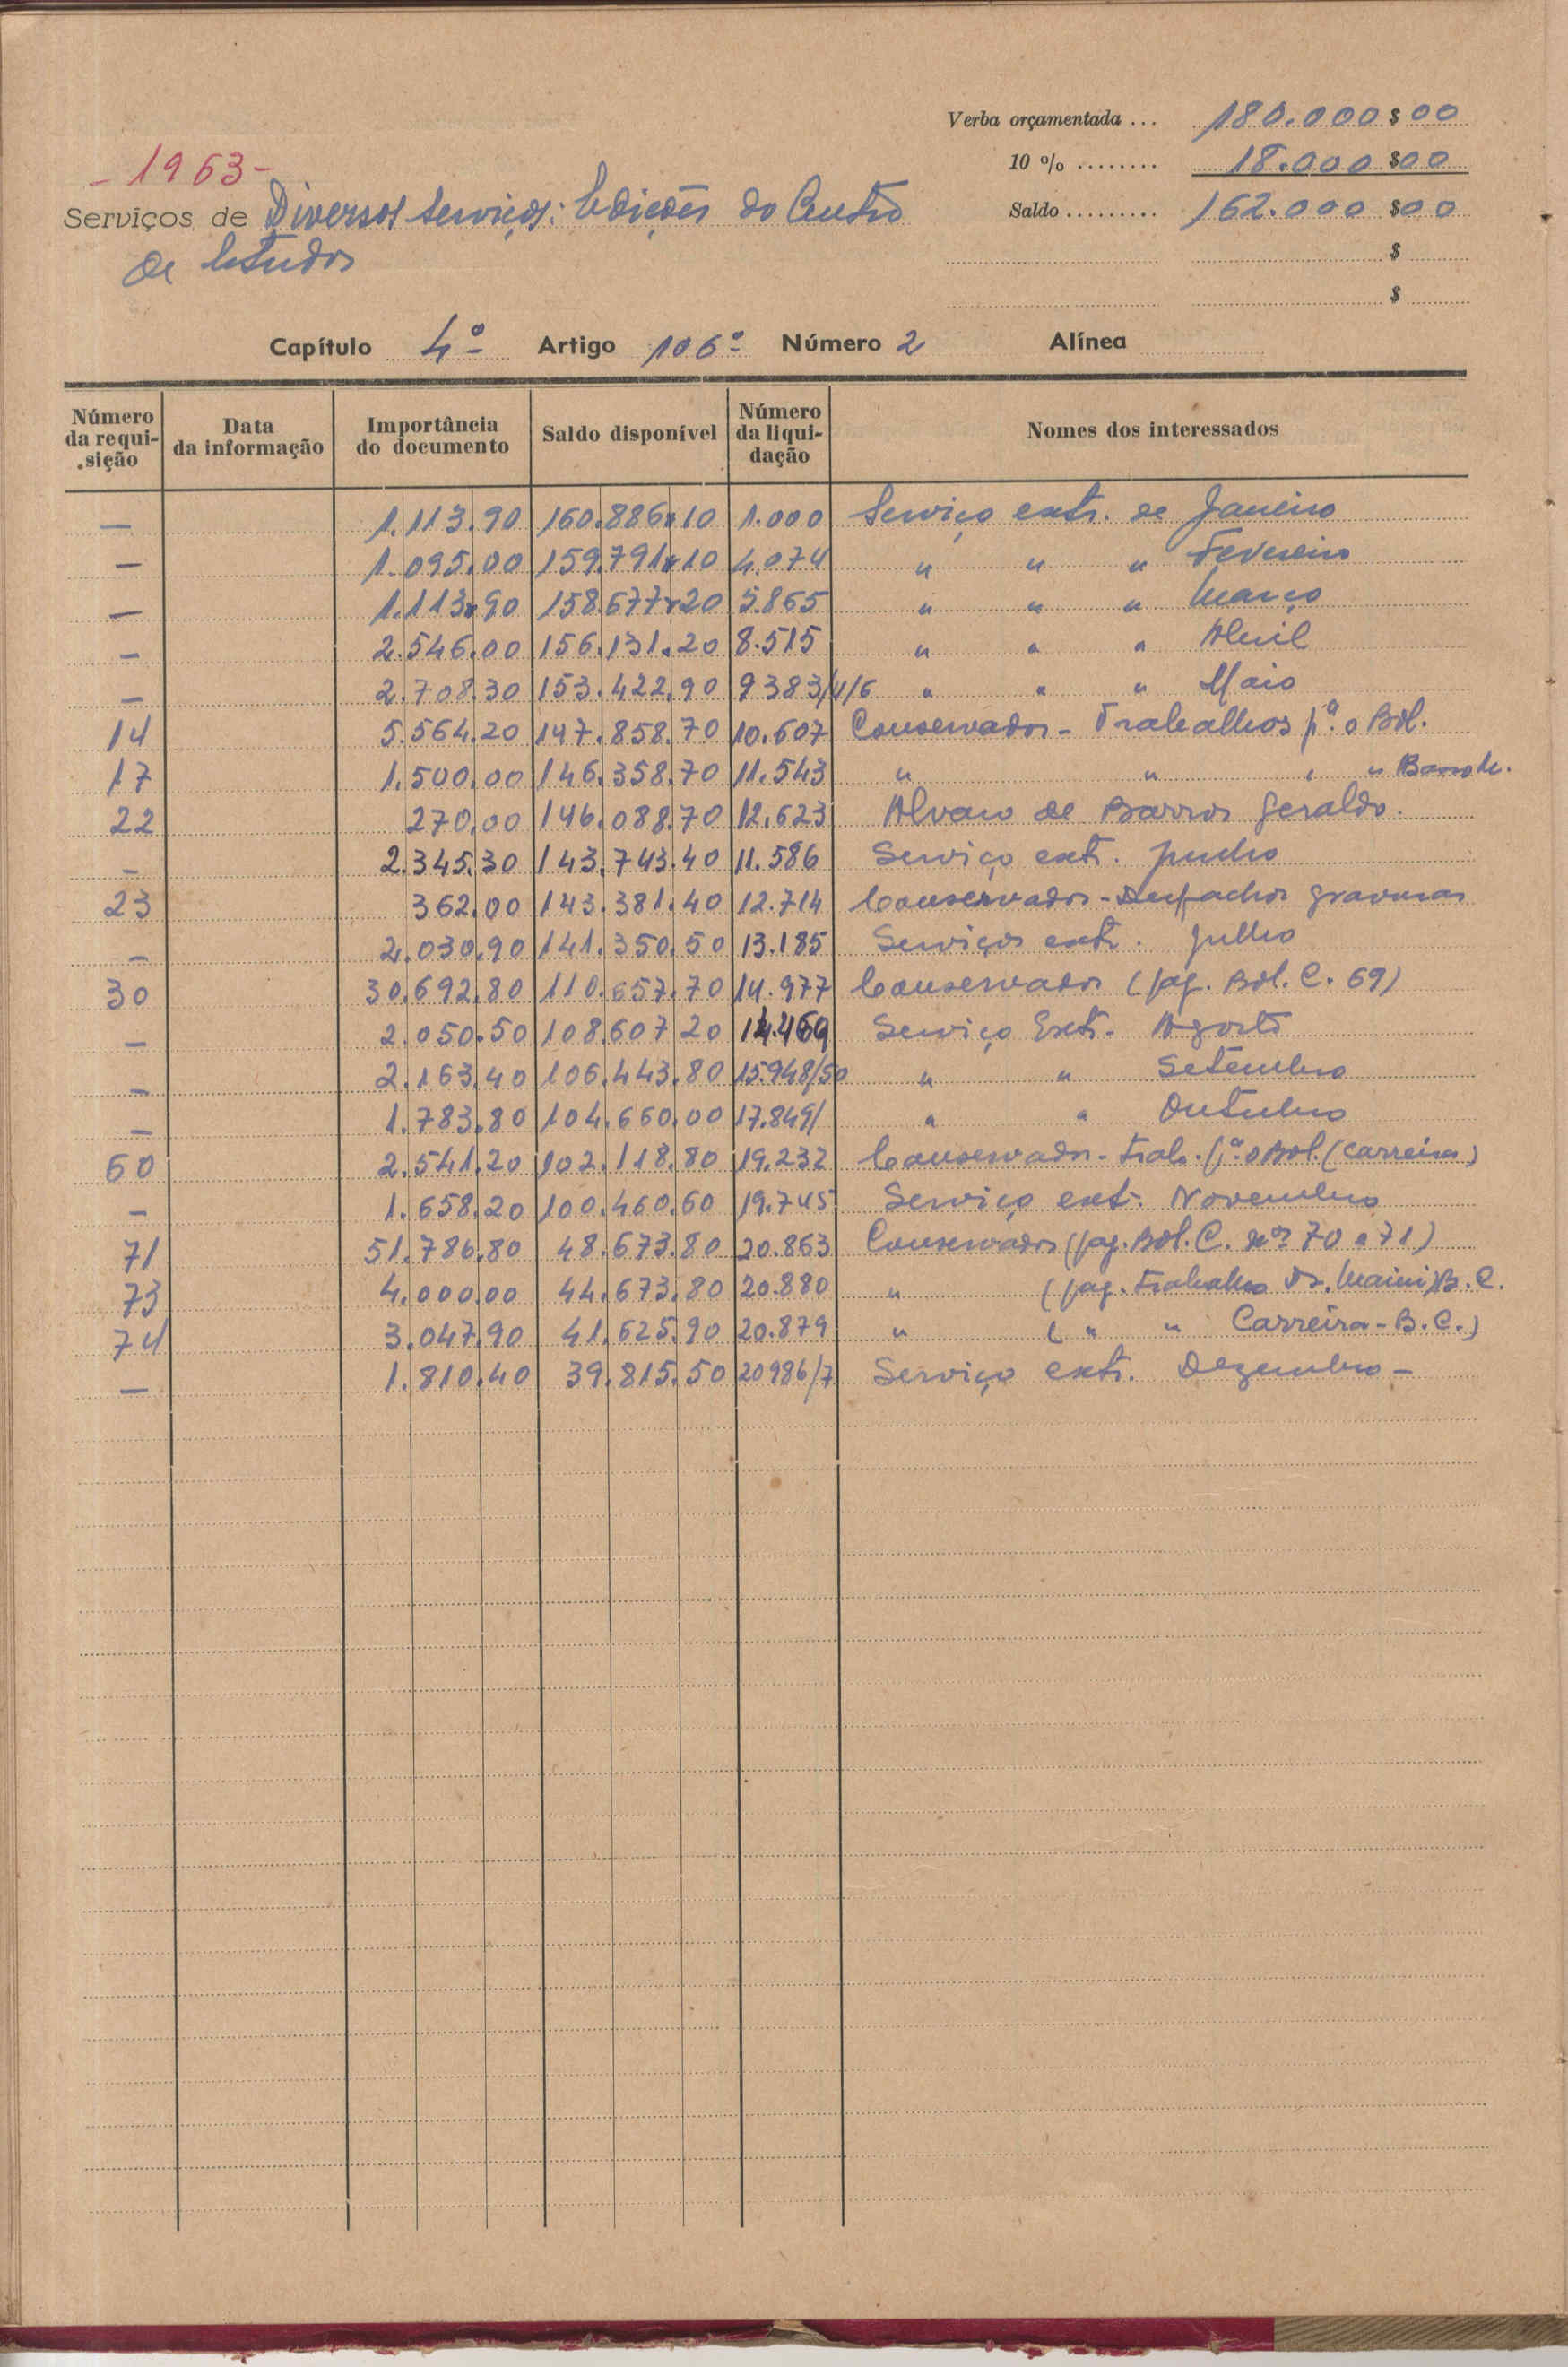 Verba orçamentada ... 180.000$00
10 % ........ 18.000$00
Saldo ......... 162.000$00
$
$
- 1963 -
Serviços de Diversos Serviços: Edições do Centro
de Estudos
Capítulo 4º Artigo 106º Número 2 Alínea
Número da requisição Data da informação Importância do documento Saldo disponível Número da liquidação Nomes dos interessados
— 1.113.90 160.886x10 1.000 Serviço extr. de Janeiro
— 1.095.00 159.791x10 4.074 " " " Fevereiro
— 1.113x90 158.677x20 5.865 " " " Março
— 2.546.00 156.131.20 8.515 " " " Abril
— 2.708.30 153.422.90 9383/4/6 " " " Maio
14 5.564.20 147.858.70 10.607 Conservador - Trabalhos p.ª o Bol.
17 1.500.00 146.358.70 11.543 " " " "
22 270.00 146.088.70 12.623 Alvaro de Barros Geraldo.
— 2.345.30 143.743.40 11.586 Serviço extr. Junho
23 362.00 143.381.40 12.714 Conservador - Despachos gravuras
— 2.030.90 141.350.50 13.185 Serviços extr. Julho
30 30.692.80 110.657.70 14.977 Conservador (pag. Bol. C. 69)
— 2.050.50 108.607 20 14.469 Serviço Extr. Agosto
— 2.163.40 106.443.80 15.948/50 " " Setembro
— 1.783.80 104.660.00 17.849/ " " Outubro
60 2.541.20 102.118.80 19.232 Conservador - Trab. p.ª o Bol. (Carreira)
— 1.658.20 100.460.60 19.745 Serviço extr. Novembro
71 51.786.80 48.673.80 20.863 Conservador (pag. Bol. C. nºs 70 e 71)
73 4.000.00 44.673.80 20.880 " (pag. trabalho Dr. B. C.
74 3.047.90 41.625.90 20.879 " ( " " Carreira - B. C.)
— 1.810.40 39.815.50 20986/7 Serviço extr. Dezembro -